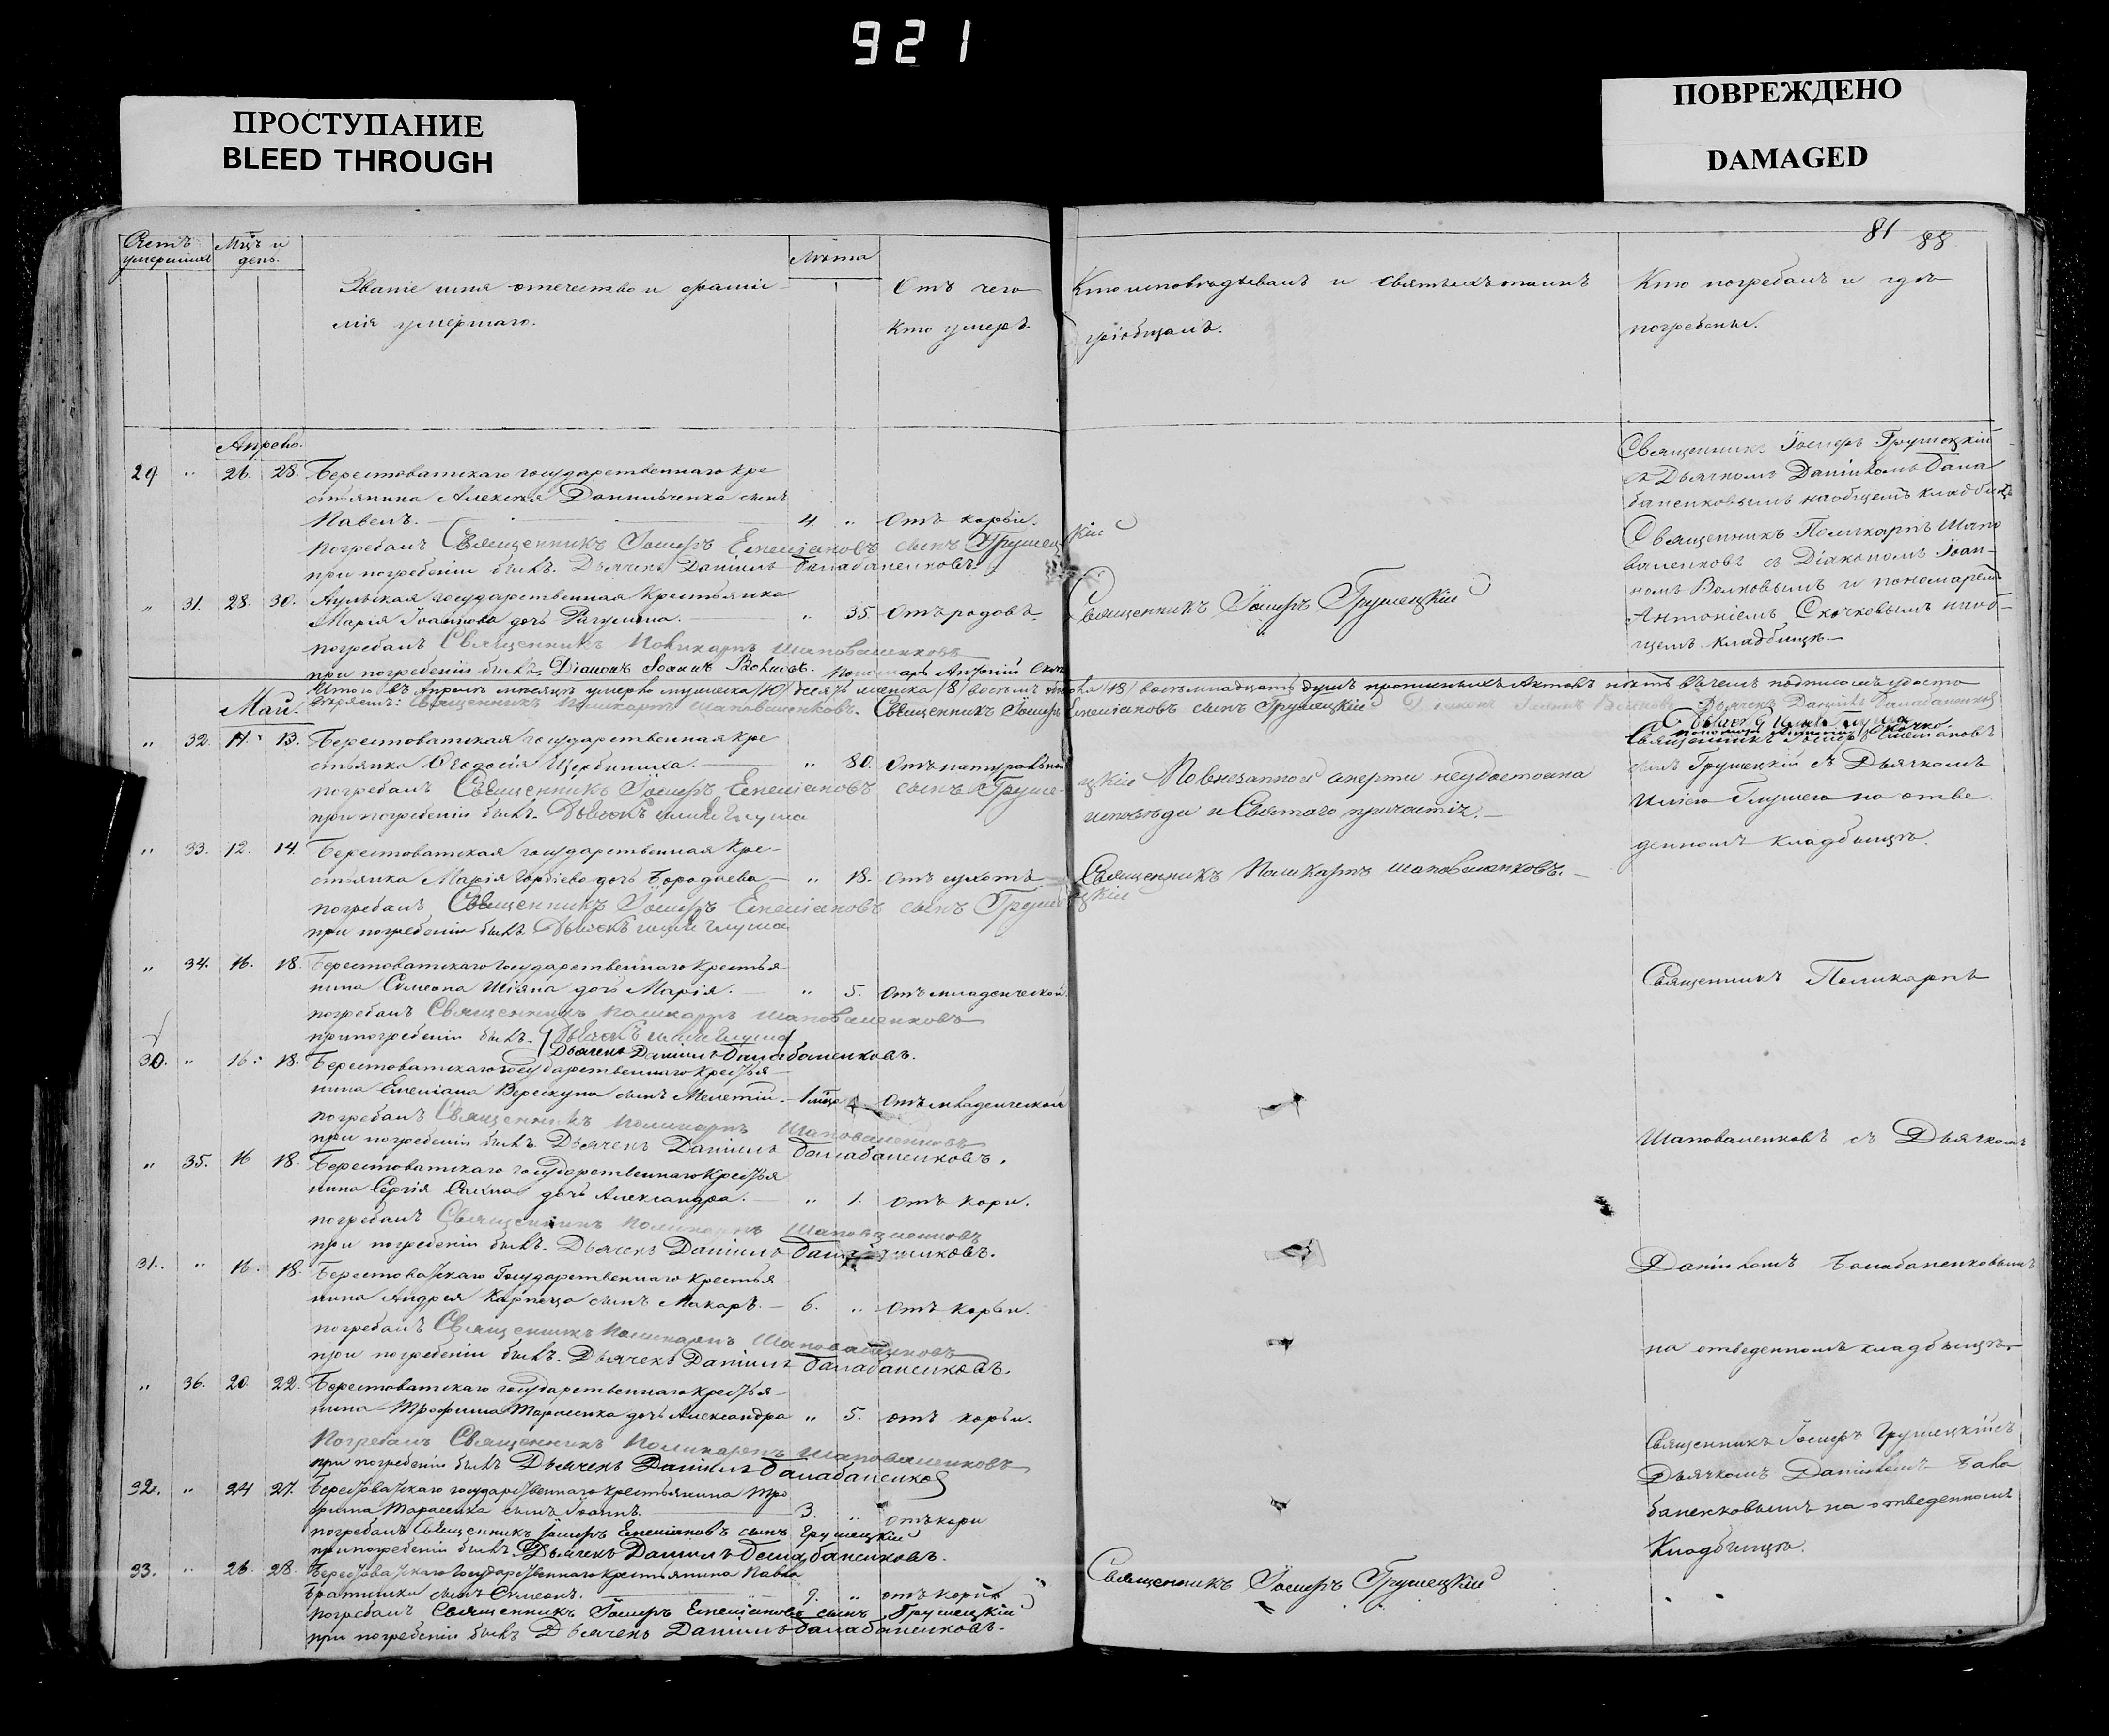 921
ПРОСТУПАНИЕ
BLEED THROUGH
ПОВРЕЖДЕНО
DAMAGED
81 88
Счетъ умершихъ
Мцъ и день.
Званіе имя отечество и фами-
лія умершаго.
Лѣта
Отъ чего
кто умеръ.
Кто исповѣдывалъ и святыхъ таинъ
пріобщалъ.
Кто погребалъ и гдѣ
погребены.
Апрель.
29 " 26. 28. Берестоватскаго государственнаго кре
стьянина Алексея Данильченка сынъ
Павелъ. 4. " Отъ корьи.
погребалъ Священникъ Іосифъ Емеліановъ сынъ Грушецкій
при погребеніи былъ. Дьячекъ Даніилъ Балабаненковъ
Священникъ Іосифъ Грушецкій
съ Дьячкомъ Даніиломъ Бала
баненковымъ на общемъ кладбищѣ
" 31. 28. 30. государственная крестьянка
Марія Іоаннова дочь " 35. Отъ родовъ
погребалъ Священникъ Поликарпъ Шаповаленковъ
при погребеніи былъ. Діаконъ Іоаннъ Волковъ. Пономарь Антоній
Священникъ Іосифъ Грушецкій
Священникъ Поликарпъ Шапо
валенковъ съ Діакономъ Іоан-
номъ Волковымъ и пономаремъ
Антоніемъ Скочковымъ на об-
щемъ кладбищѣ
Итого въ Апреле месяце умерло мужеска /10/ десять женска /8/ восемь обоего /18/ восемнадцать душъ
Священникъ Поликарпъ Шаповаленковъ. Священникъ Іосифъ Емеліановъ сынъ Грушецкій Дьячекъ Даніилъ Балабаненковъ
Маи.
" 32. 11. 13. Берестоватская государственная кре
стьянка Феодосія Щербиниха. " 80. Отъ натуральной
погребалъ Священникъ Іосифъ Емеліановъ сынъ Груше-
цкій
при погребеніи былъ. Дьячекъ Илія Глуша
По внезапной смерти неудостоена
исповѣди и Святаго причастія.
Священникъ Іосифъ Емеліановъ
сынъ Грушецкій съ Дьячкомъ
Иліею Глушею на отве
денномъ кладбищѣ.
" 33. 12. 14. Берестоватская государственная кре-
стьянка Марія Гордіева дочь Бородаева " 18. Отъ сухотъ
погребалъ Священникъ Іосифъ Емеліановъ сынъ Грушецкій
при погребеніи былъ Дьячекъ Илія Глуша
Священникъ Поликарпъ Шаповаленковъ.
" 34. 16. 18. Берестоватскаго государственнаго крестья
нина Симеона Шіяна дочь Марія. " 5. Отъ младенческой.
погребалъ Священникъ Поликарпъ Шаповаленковъ
при погребеніи былъ. Дьячекъ Илія Глуша
Дьячекъ Даніилъ Балабаненковъ.
Священникъ Поликарпъ
30. " 16. 18. Берестоватскаго государственнаго крестья-
нина Емеліана Верескуна сынъ Мелетій. 1 Отъ младенческой
погребалъ Священникъ Поликарпъ Шаповаленковъ
при погребеніи былъ Дьячекъ Даніилъ Балабаненковъ.
Шаповаленковъ съ Дьячкомъ
" 35. 16 18. Берестоватскаго государственнаго крестья
нина Сергія дочь Александра. " 1. Отъ кори.
погребалъ Священникъ Поликарпъ Шаповаленковъ
при погребеніи былъ. Дьячекъ Даніилъ Балабаненковъ.
31. " 16. 18. Берестоватскаго Государственнаго крестья
нина Андрея Карпеца сынъ Макаръ. 6. " Отъ корьи.
погребалъ Священникъ Поликарпъ Шаповаленковъ
при погребеніи былъ. Дьячекъ Даніилъ Балабаненковъ.
Даніиломъ Балабаненковымъ
на отведенномъ кладбищѣ
" 36. 20. 22. Берестоватскаго государственнаго крестья-
нина Трофима Тарасенка дочь Александра " 5. отъ корьи.
Погребалъ Священникъ Поликарпъ Шаповаленковъ
при погребеніи былъ Дьячекъ Даніилъ Балабаненковъ
32. " 24 27. Берестоватскаго государственнаго крестьянина Тро
фима Тарасенка сынъ Іоаннъ. 3. " отъ кори
погребалъ Священникъ Іосифъ Емеліановъ сынъ Грушецкій
при погребеніи былъ. Дьячекъ Даніилъ Балабаненковъ.
Священникъ Іосифъ Грушецкій съ
Дьячкомъ Даніиломъ Бала
баненковымъ на отведенномъ
Кладбищѣ.
33. " 26. 28. Берестоватскаго Государственнаго крестьянина Павла
Братишки сынъ Симеонъ. 9. " отъ корьи
погребалъ Священникъ Іосифъ Емеліановъ сынъ Грушецкій
при погребеніи былъ Дьячекъ Даніилъ Балабаненковъ.
Священникъ Іосифъ Грушецкій